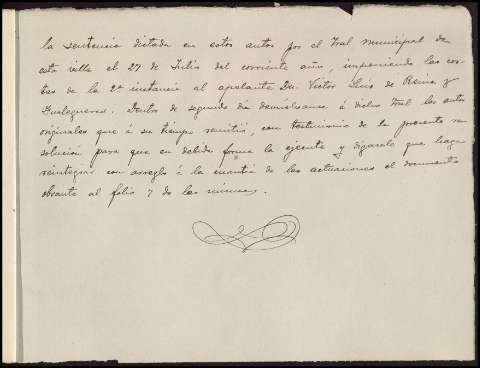 la sentencia dictada en estos autos por el Tral Municipal de
esta villa el 27 de Julio del corriente año, imponiendo las cos-
tas de la 2ª instancia al apelante Dn. Victor Luis de
Dentro de segundo dia devuelvanse á dicho Tral los autos
originales que á su tiempo remitió, con testimonio de la presente re-
solución para que en debida forma la ejecute y digasele que haga
reintegrar con arreglo á la cuantia de las actuaciones el documento
obrante al folio 7 de las mismas.